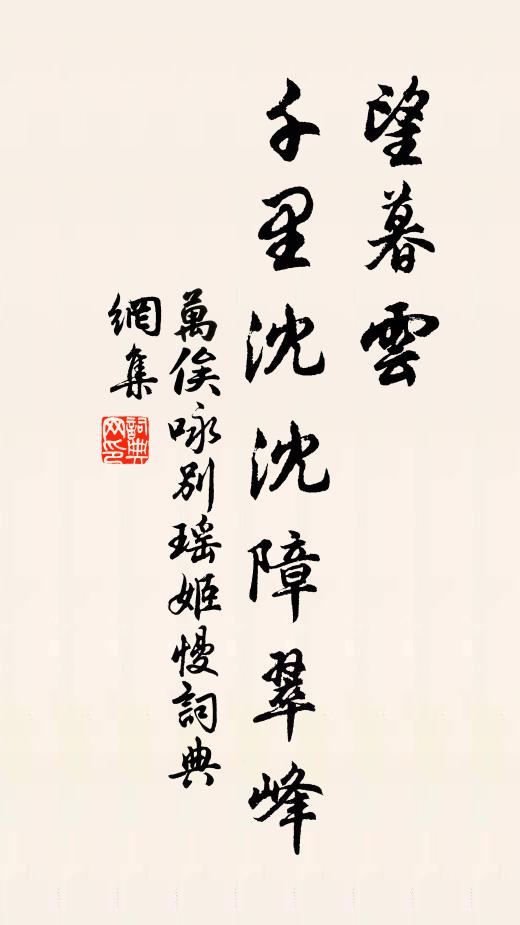 望暮雲
千里沈沈障翠峰
萬俟咏別瑶姬慢詞典
網集
詞典
网印